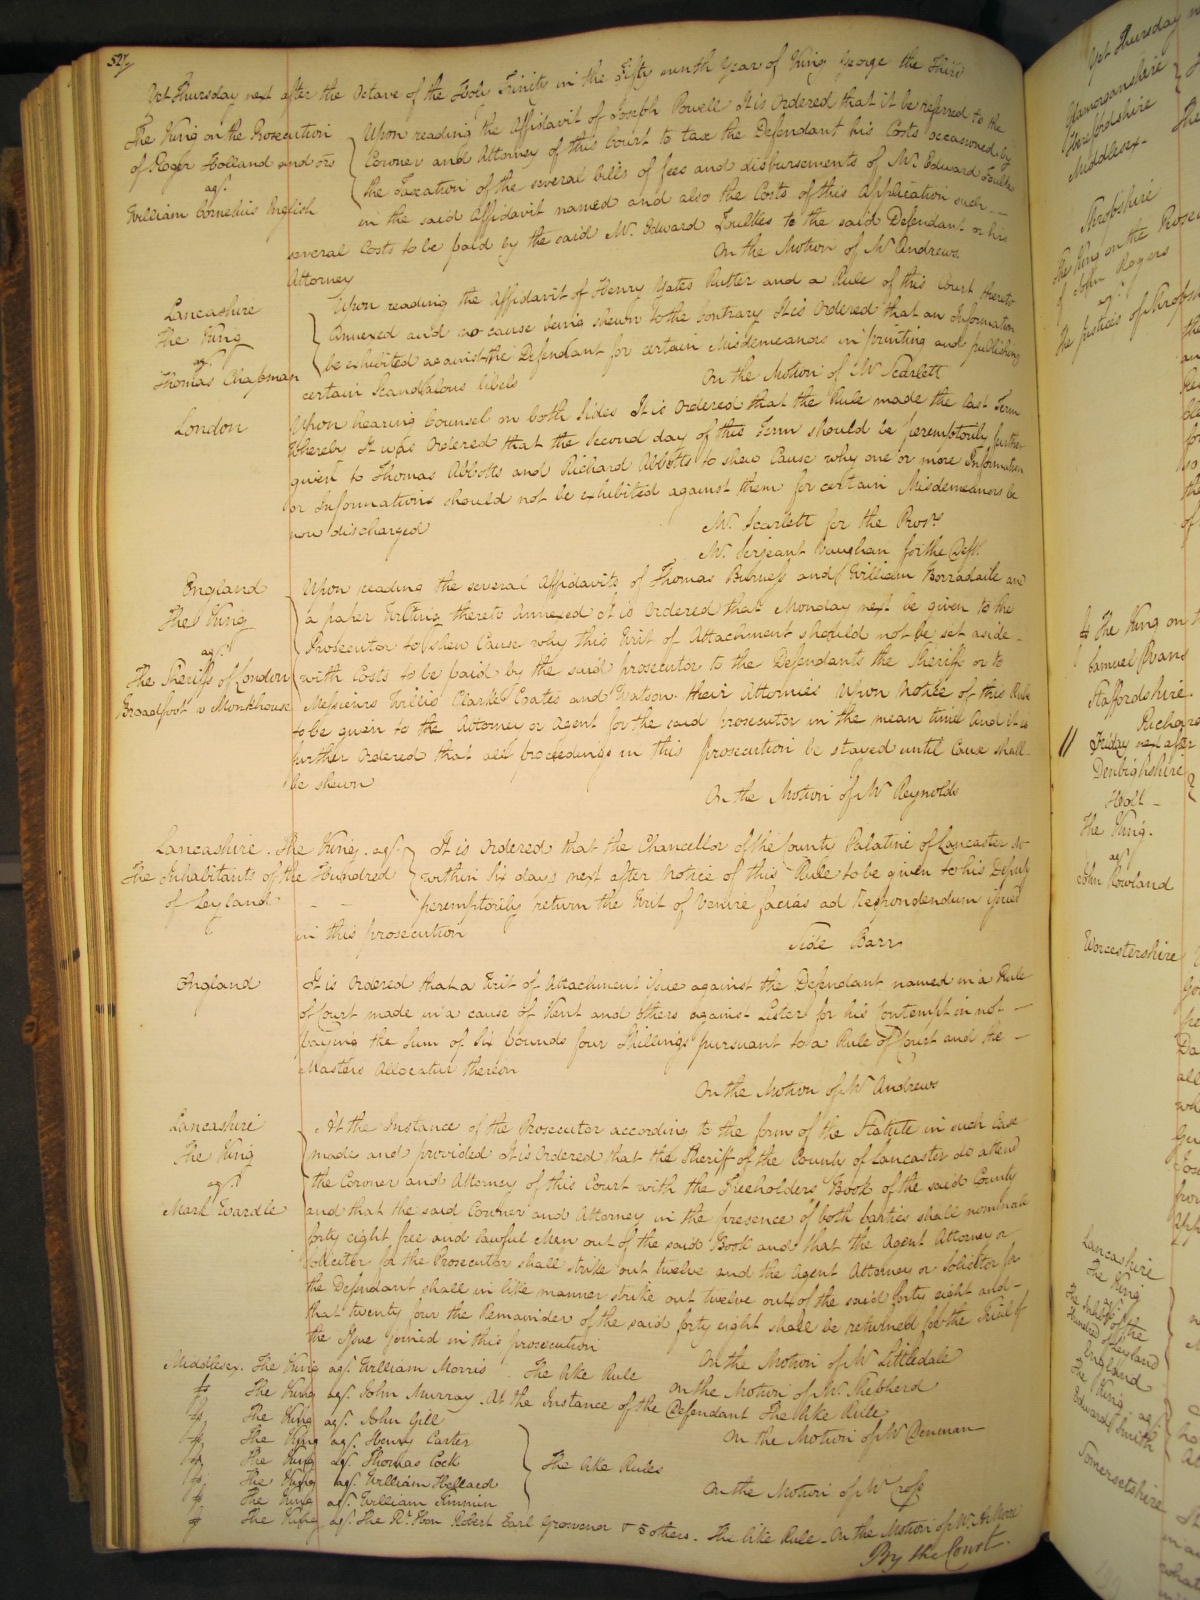 527
Yet Thursday next after the Octave of the Holy Trinity in the Fifty ninth Year of King George the Third
The King on the Prosecution
of Roger Holland and ors
agst
William Cornelius English
Upon reading the Affidavit of Joseph Powell It is Ordered that it be referred to the
Coroner and Attorney of this Court to tax the Defendant his Costs occasioned by
the Taxation of the several bills of fees and disbursements of Mr. Edward Foulkes
in the said Affidavit named and also the Costs of this Application such
several Costs to be paid by the said Mr. Edward Foulkes to the said Defendant or his
Attorney
On the Motion of Mr Andrews
Lancashire
The King
agst
Thomas Chapman
Upon reading the Affidavit of Henry Yates Rutter and a Rule of this Court thereto
Annexed and no cause being shewn to the Contrary It is Ordered that an Information
be exhibited against the Defendant for certain Misdemeanors in printing and publishing
certain Scandalous libels
On the Motion of Mr Scarlett
London
Upon hearing Counsel on both Sides It is Ordered that the Rule made the last Term
Whereby It was Ordered that the Second day of this Term should be peremptorily further
given to Thomas Abbotts and Richard Abbotts to shew Cause why one or more Information
or Informations should not be exhibited against them for certain Misdemeanors be
now discharged
Mr. Scarlett for the Prosrs
Mr. Serjeant Vaughan for the Defts.
England
The King
agst
The Sheriffs of London
Broadfoot v Monkhouse
Upon reading the several Affidavits of Thomas Burness and William Borradaile and
a paper Writing thereto Annexed It is Ordered that Monday next be given to the
Prosecutor to shew Cause why this Writ of Attachment should not be set aside
with Costs to be paid by the said prosecutor to the Defendants the Sheriffs or to
Messieurs Willis Clarke Coates and Watson their Attornies Upon Notice of this Rule
to be given to the Attorney or Agent for the said prosecutor in the mean time And it is
further Ordered that all proceedings in this prosecution be stayed until Cause shall
be shewn
On the Motion of Mr Reynolds
Lancashire. The King. agst
The Inhabitants of the Hundred
of Leyland
It is Ordered that the Chancellor of the County Palatine of Lancaster do
within Six days next after Notice of this Rule to be given to his Deputy
peremptorily return the Writ of Venire facias ad Respondendum issued
in this prosecution
Side Barr
England
It is Ordered that a Writ of Attachment issue against the Defendant named in a Rule
of Court made in a cause of Kent and others against Lister for his Contempt in not
paying the Sum of Six pounds four Shillings pursuant to a Rule of Court and the
Masters Allocatur thereon
On the Motion of Mr Andrews
Lancashire
The King
agst
Mark Wardle
At the Instance of the Prosecutor according to the form of the Statute in such Case
made and provided It is Ordered that the Sheriff of the County of Lancaster do attend
the Coroner and Attorney of this Court with the Freeholders Book of the said County
and that the said Coroner and Attorney in the presence of both parties shall nominate
forty eight free and lawful Men out of the said Book and that the Agent Attorney or
Solicitor for the Prosecutor shall strike out twelve and the Agent Attorney or Solicitor for
the Defendant shall in like manner strike out twelve out of the said forty eight and
that twenty four the Remainder of the said forty eight shall be returned for the Trial of
the Issue Joined in this prosecution
On the Motion of Mr Littledale
Middlesex. The King agst. William Morris. The like Rule
On the Motion of Mr. Shepherd
The King agst. John Murray. At the Instance of the Defendant The like Rule
The King agst. John Gill
On the Motion of Mr Denman
The King agst. Henry Carter
The King agst. Thomas Cock
The like Rules
The King agst. William Hellard
The King agst. William Timmin
On the Motion of Mr Cross
The King agst. The Rt. Hon Robert Earl Grosvenor & 5 others. The like Rule. On the Motion of Mr.
By the Court.
Yet Thursday
Glamorganshire
Herefordshire
Middlesex
Shropshire
The King on the Prosec
of John Rogers
agst
The Justices of Shropsh
The King on
Samuel Evans
Staffordshire
Richard
Friday next after
Denbighshire
Holt
The King.
agst
John Rowland
Worcestershire
Lancashire
The King
agst
The Inhabts of the
Hundred of Leyland
England
The King. agst
Edward Smith
Somersetshire